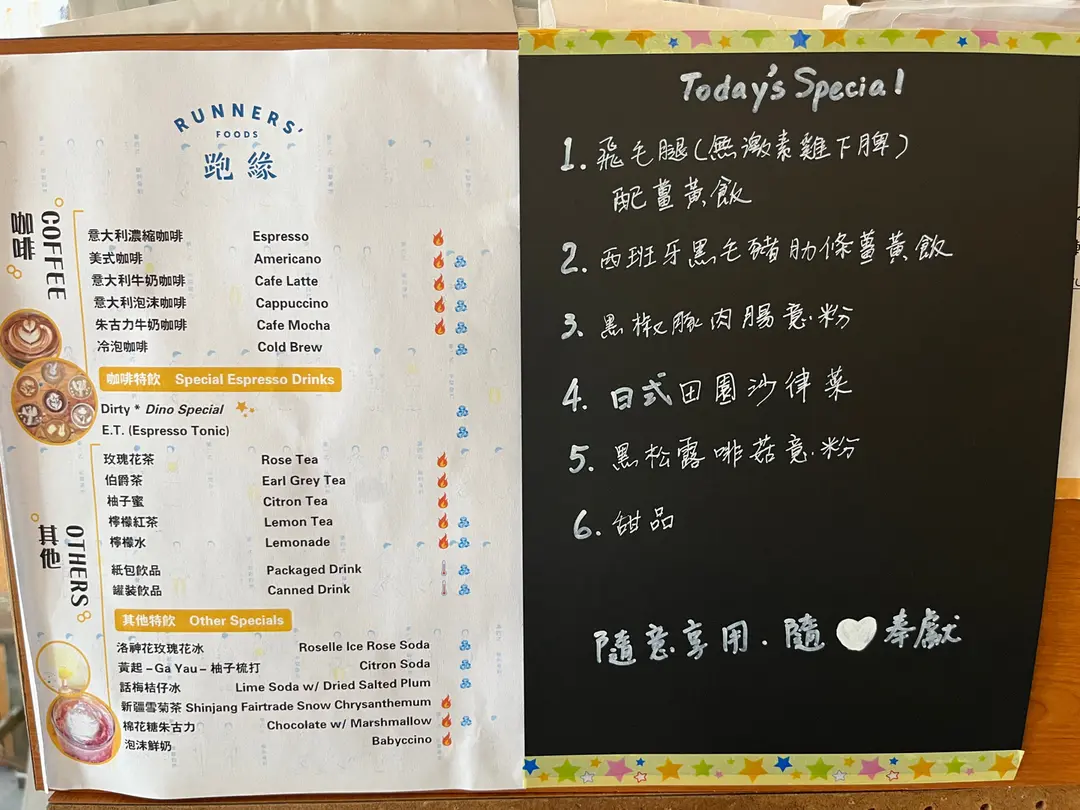 RUNNERS'
FOODS
跑緣
COFFEE
咖啡
意大利濃縮咖啡 Espresso
美式咖啡 Americano
意大利牛奶咖啡 Cafe Latte
意大利泡沫咖啡 Cappuccino
朱古力牛奶咖啡 Cafe Mocha
冷泡咖啡 Cold Brew
咖啡特飲 Special Espresso Drinks
Dirty * Dino Special
E.T. (Espresso Tonic)
OTHERS
其他
玫瑰花茶 Rose Tea
伯爵茶 Earl Grey Tea
柚子蜜 Citron Tea
檸檬紅茶 Lemon Tea
檸檬水 Lemonade
紙包飲品 Packaged Drink
罐裝飲品 Canned Drink
其他特飲 Other Specials
洛神花玫瑰花冰 Roselle Ice Rose Soda
黃起 – Ga Yau – 柚子梳打 Citron Soda
話梅桔仔冰 Lime Soda w/ Dried Salted Plum
新疆雪菊茶 Shinjang Fairtrade Snow Chrysanthemum
棉花糖朱古力 Chocolate w/ Marshmallow
泡沫鮮奶 Babyccino
Today's Special
1. 飛毛腿(無激素雞下脾)
配薑黃飯
2. 西班牙黑毛豬肋條薑黃飯
3. 黑椒豚肉腸意粉
4. 日式田園沙律菜
5. 黑松露啡菇意粉
6. 甜品
隨意享用.隨🤍奉獻